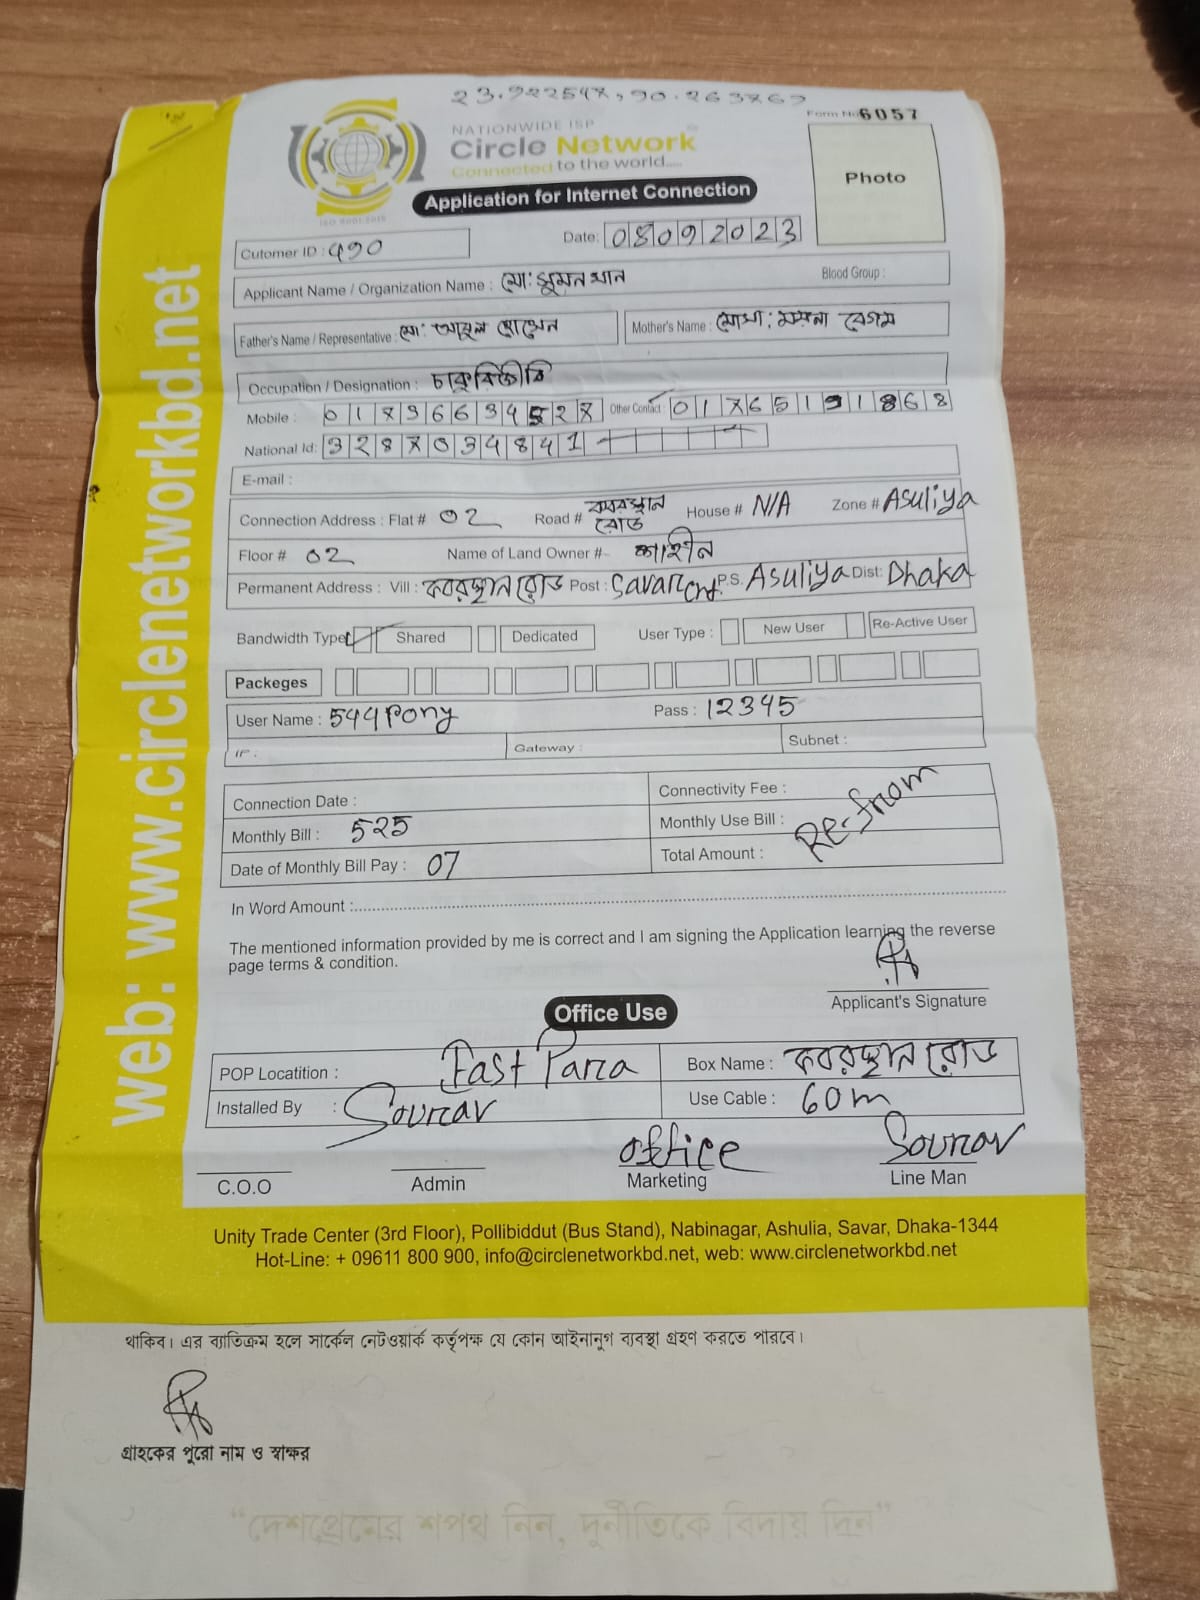 23.922547, 90.263767
Form No 6057
NATIONWIDE ISP
Circle Network
Connected to the world.....
Photo
Application for Internet Connection
ISO 9001:2015
Date: 08092023
Cutomer ID : 490
Applicant Name / Organization Name : মো: সুমন খান Blood Group :
Father's Name / Representative : মো: আবুল হোসেন Mother's Name : মোসা: ময়না বেগম
Occupation / Designation : চাকুরিজীবি
Mobile : 01736634527 Other Contact : 01765191868
National Id: 3287034841
E-mail :
Connection Address : Flat # 02 Road # কবরস্থান রোড House # N/A Zone # Asuliya
Floor # 02 Name of Land Owner # শাহীন
Permanent Address : Vill : কবরস্থান রোড Post : Savar Cnt. P.S. Asuliya Dist: Dhaka
Bandwidth Type Shared Dedicated User Type : New User Re-Active User
Packeges
User Name : 544Pony Pass : 12345
IP : Gateway : Subnet :
Connection Date : Connectivity Fee :
Monthly Bill : 525 Monthly Use Bill : Re-from
Date of Monthly Bill Pay : 07 Total Amount :
In Word Amount :
The mentioned information provided by me is correct and I am signing the Application learning the reverse
page terms & condition.
Applicant's Signature
Office Use
POP Locatition : East Para Box Name : কবরস্থান রোড
Installed By : Sourav Use Cable : 60m
office Sourav
C.O.O Admin Marketing Line Man
Unity Trade Center (3rd Floor), Pollibiddut (Bus Stand), Nabinagar, Ashulia, Savar, Dhaka-1344
Hot-Line: + 09611 800 900, info@circlenetworkbd.net, web: www.circlenetworkbd.net
web: www.circlenetworkbd.net
থাকিব। এর ব্যাতিক্রম হলে সার্কেল নেটওয়ার্ক কর্তৃপক্ষ যে কোন আইনানুগ ব্যবস্থা গ্রহণ করতে পারবে।
গ্রাহকের পুরো নাম ও স্বাক্ষর
“দেশপ্রেমের শপথ নিন, দুর্নীতিকে বিদায় দিন”